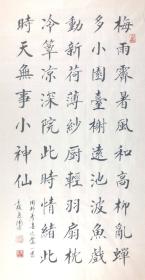 梅雨霽暑風和高柳亂蟬
多小園臺榭遠池波魚戲
動新荷薄紗厨輕羽扇枕
冷簟涼深院此時情緒此
時天無事小神仙
周邦彦